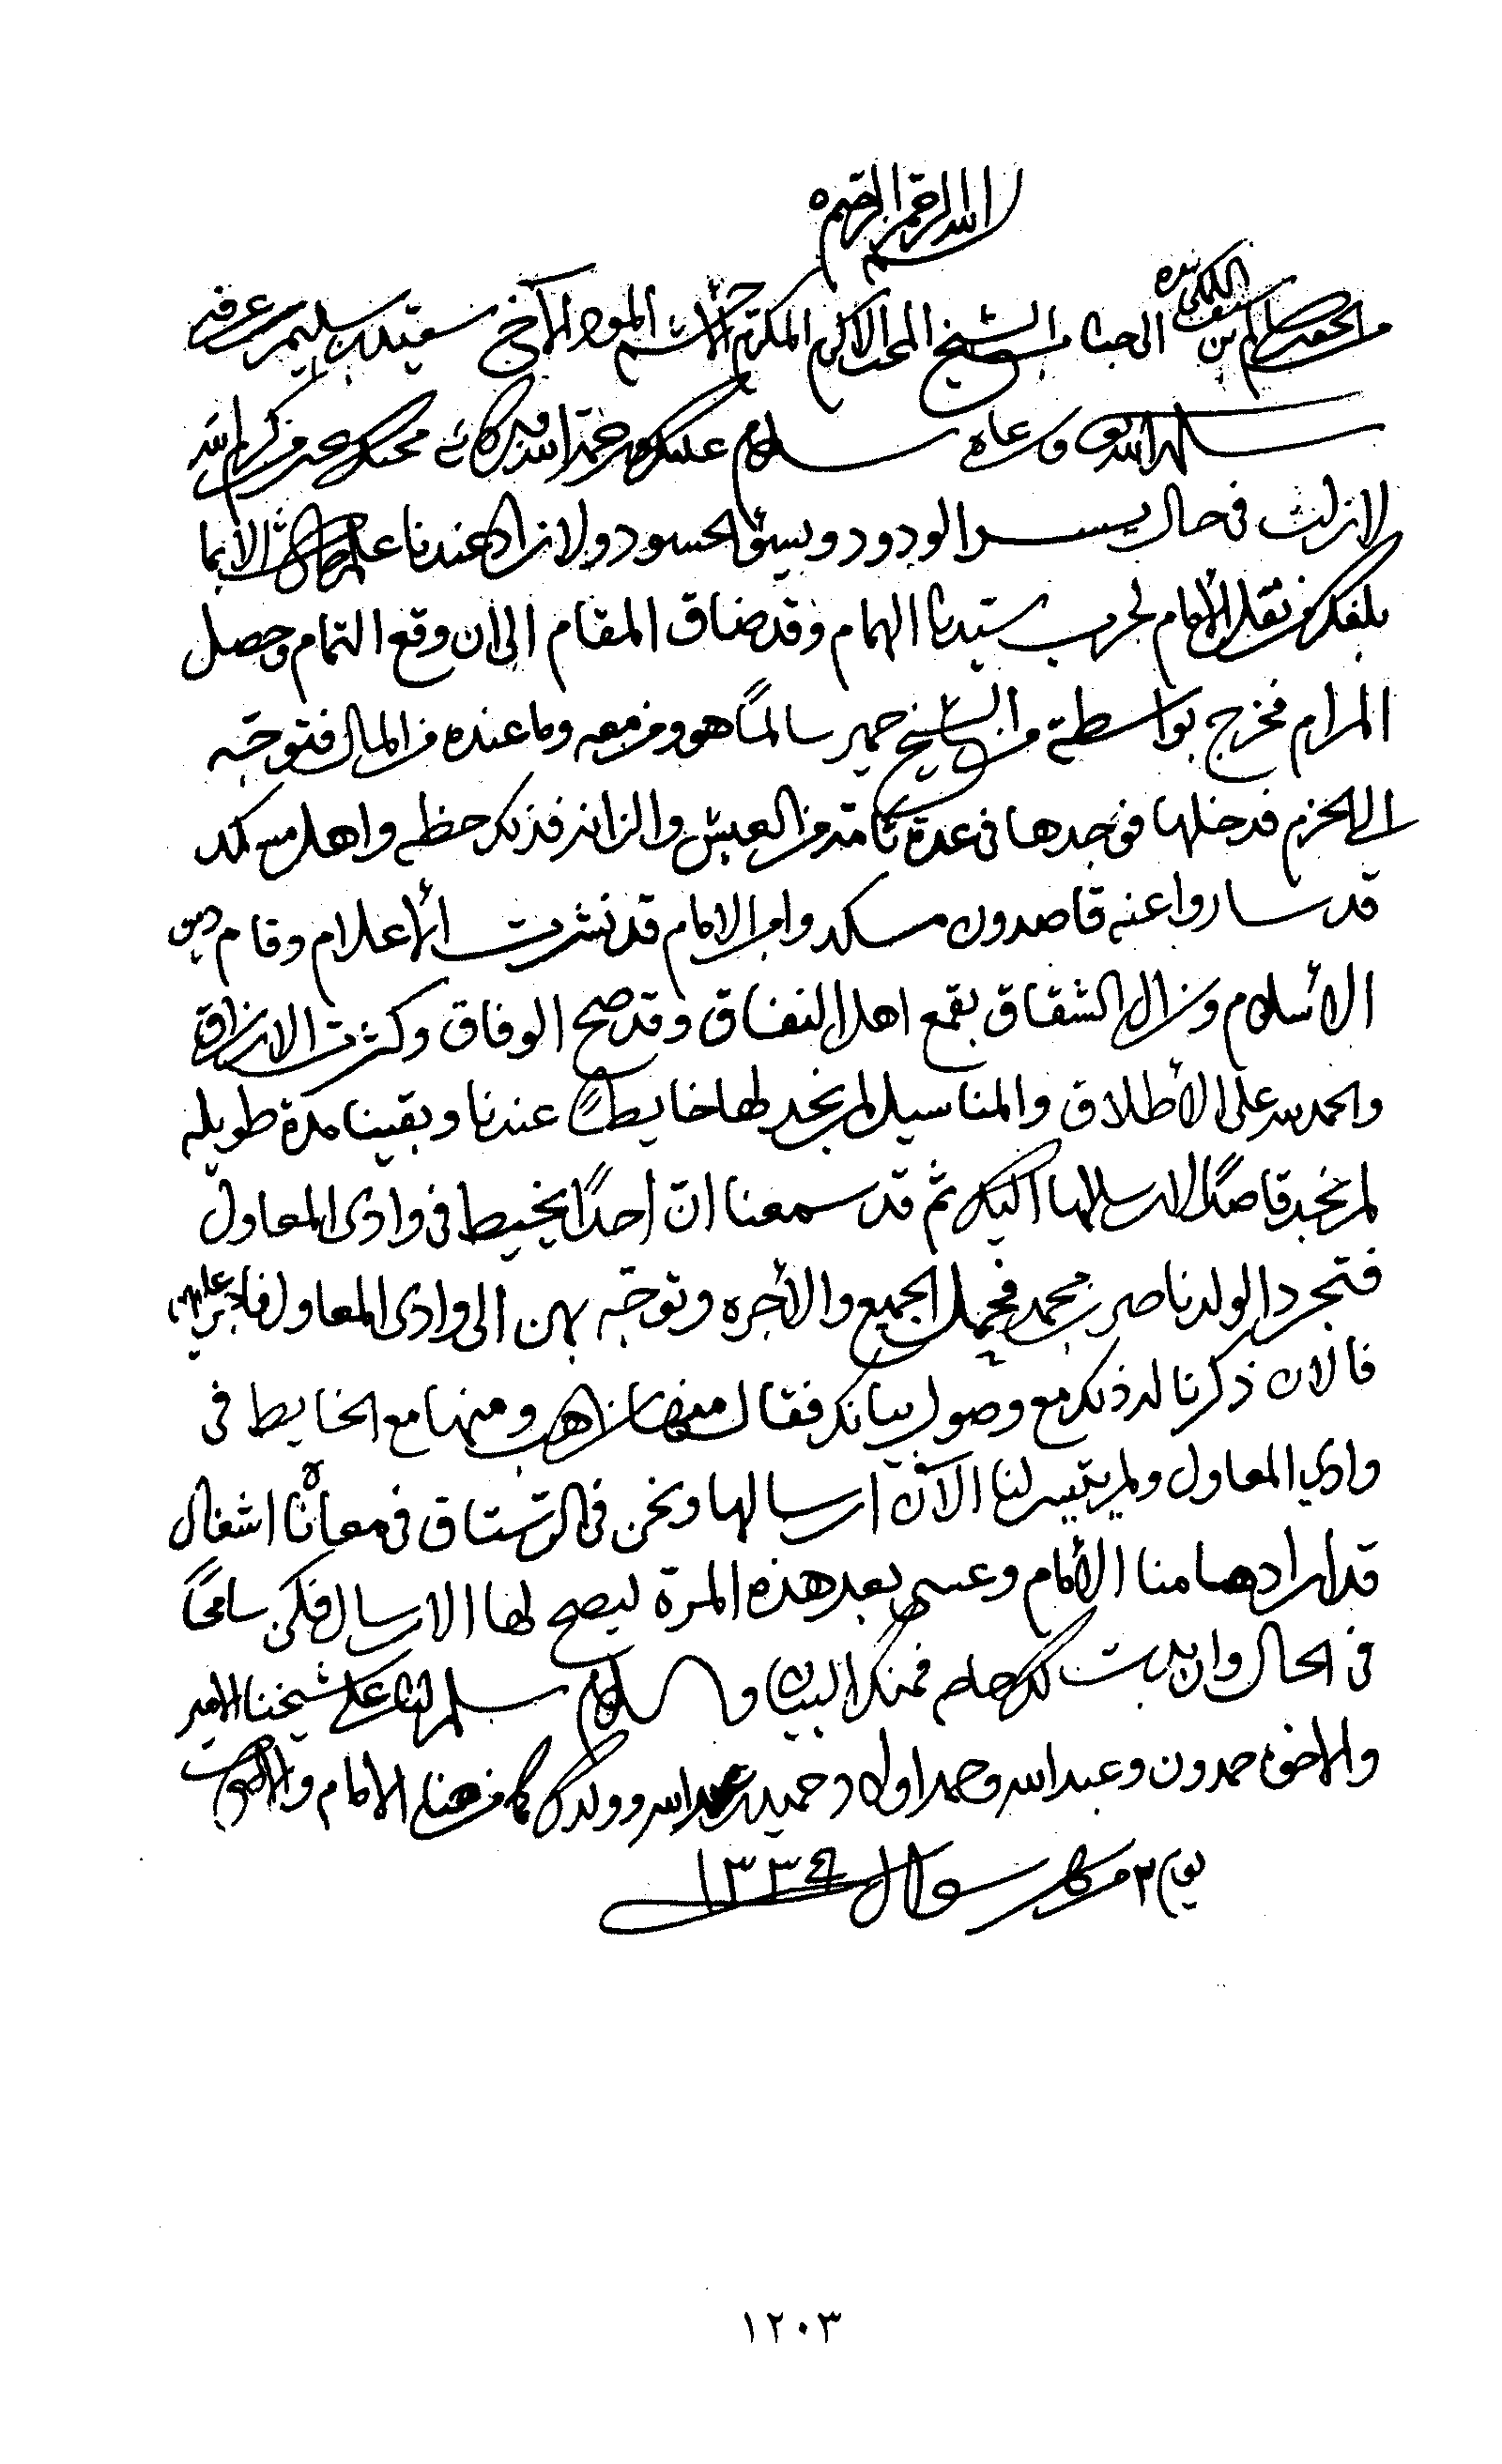 بسم الله الرحمن الرحيم
من الحقير سالم بن سيف اللمكي بيده الى جناب الشيخ المحب الاكرم المكرم الاحشم المود الأخ سعيد بن سليم بن عرفه
سلمه الله تعالى ورعاه سلام عليكم ورحمة الله وبركاته محبك بخير من كرم الله
لازلت في حال يسر الودود ويسؤ الحسود ولا زاد عندنا علم الا بما
بلغك من نقل الأمام لحرب سيدنا الهمام وقد ضاق المقام الى ان وقع التمام وحصل
المرام فخرج بواسطة الشيخ حمير سالمًا هو ومن معه وما عنده من المال فتوجّه
الى الحزم فدخلها فوجدها في عدة تامة من العيش والزانه فذكر حظه واهل مسكد
قد ساروا عنه قاصدون مسكد وامر الامام قد نشرت الأعلام وقام دين
الأسلام وزال الشقاق بقمع اهل النفاق وقد صح الوفاق وكثرت الارزاق
والحمد لله على الأطلاق والمناسيل لم نجد لها خايطًا عندنا وبقينا مدة طويله
لم نجد قاصدًا لارسالها اليك ثم قد سمعنا انّ احدًا يخيط في وادي المعاول
فتجرد الولد ناصر بن محمد فحمل الجميع والأجره وتوجّه بهن الى وادي المعاول
فالان ذكرنا له ذلك مع وصول بيانك فقال منها زاهب ومنها مع الخايط في
وادي المعاول ولم يتيسر لنا الآن ارسالها ونحن في الرستاق في معاناة اشغال
قد ارادها منا الأمام وعسى بعد هذه المرة ليصح لها الارسال فكن سامحًا
في الحال وان بدت لك حاجه فمنك البيان والسلام سلم لنا على شيخنا الامير
والاخوة حمدون وعبدالله وحمد اولاد حميد بن عبدالله وولدك كما من هنا الامام والاخوان
يوم ٣ من شهر شوال ١٣٣٤
١٢٠٣